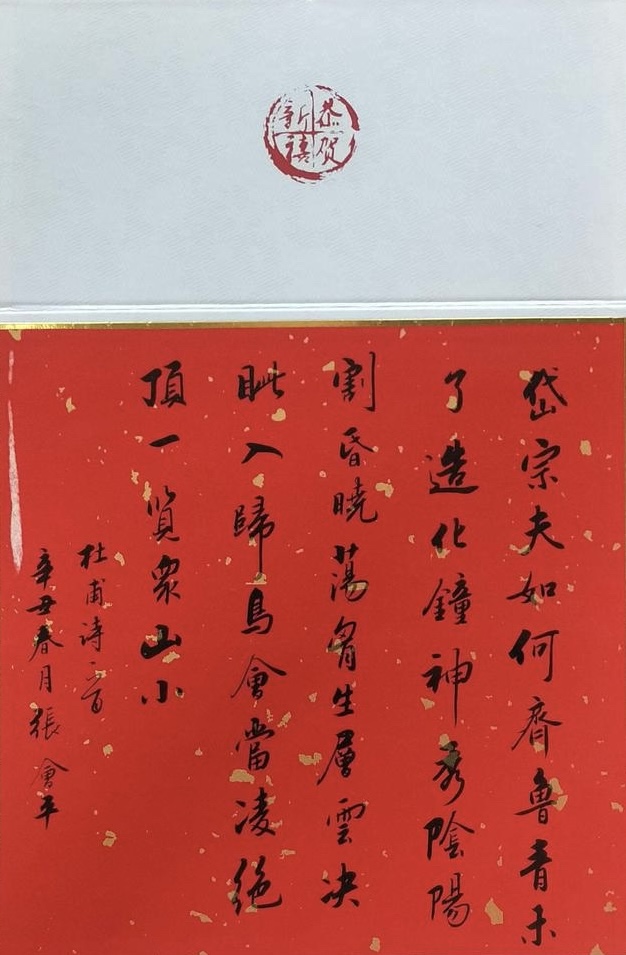 恭贺新禧
岱宗夫如何齊魯青未
了造化鐘神秀陰陽
割昏曉蕩胷生層雲决
眦入歸鳥會當凌絕
頂一覽衆山小
杜甫詩一首
辛丑春月張會平